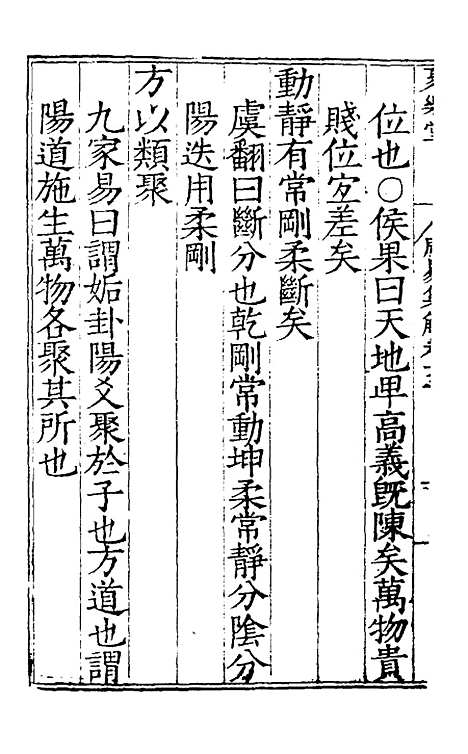 位也○侯果曰天地𤰞高義既陳矣萬物貴
賤位宐差矣
動靜有常剛柔斷矣
虞翻曰斷分也乾剛常動坤柔常靜分陰分
陽迭用柔剛
方以類聚
九家易曰謂姤卦陽爻聚於子也方道也謂
陽道施生萬物各聚其所也